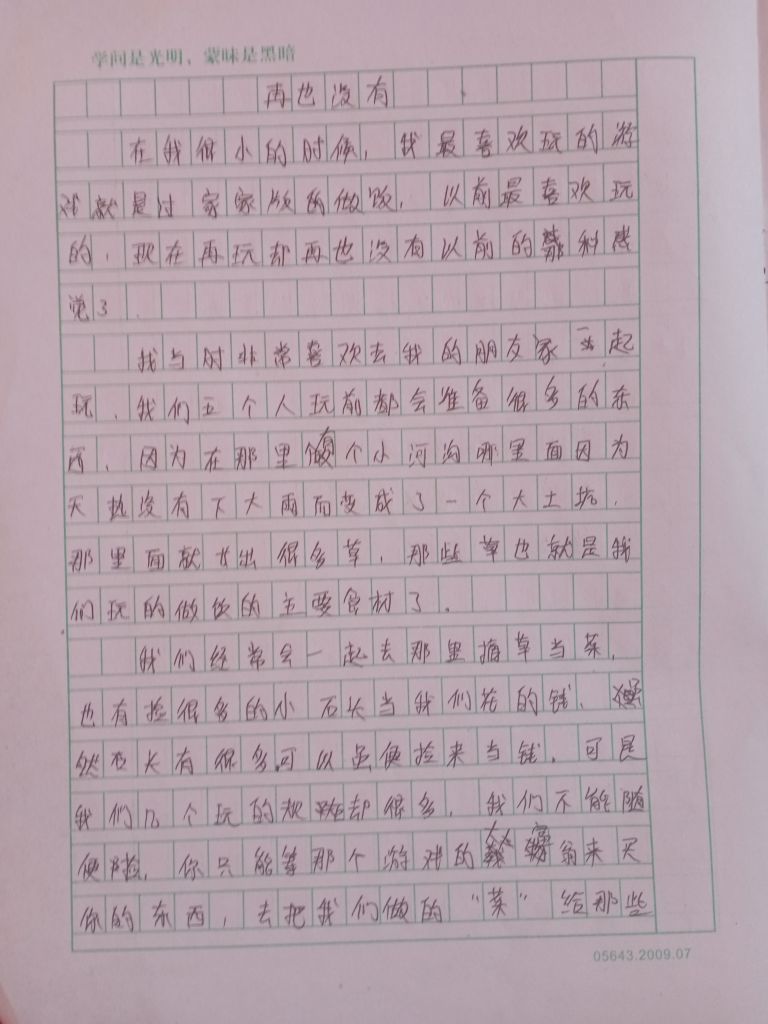 学问是光明，蒙昧是黑暗
再也没有
在我很小的时候，我最喜欢玩的游
戏就是过家家版的做饭，以前最喜欢玩
的，现在再玩却再也没有以前的那种感
觉了
我当时非常喜欢去我的朋友家一起
玩，我们五个人玩前都会准备很多的东
西，因为在那里有个小河沟哪里面因为
天热没有下大雨而变成了一个大土坑，
那里面就长出很多草，那些草也就是我
们玩的做饭的主要食材了。
我们经常会一起去那里摘草当菜，
也有捡很多的小石头当我们花的钱，虽
然石头有很多可以虽便捡来当钱，可是
我们几个玩的规矩却很多，我们不能随
便捡，你只能等那个游戏的大富翁来买
你的东西，去把我们做的“菜”给那些
05643.2009.07